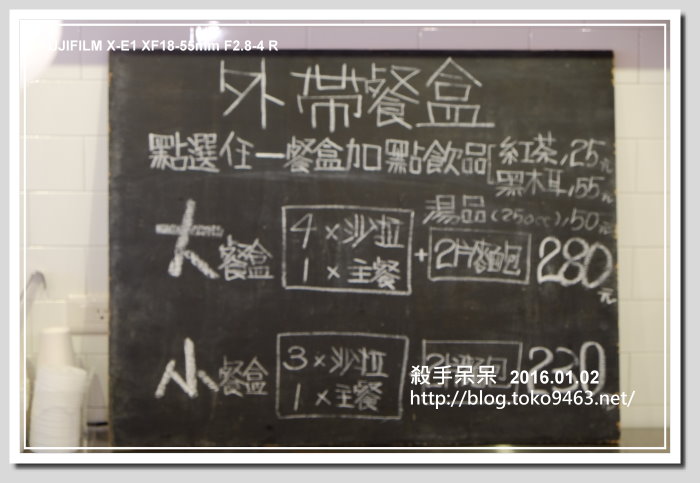 JIFILM X-E1 XF18-55mm F2.8-4 R
外帶餐盒
點選任一餐盒加點飲品 紅茶,25元
黑木耳,55元
湯品(250cc),50元
大餐盒 4×沙拉 1×主餐 + 2片麵包 280元
小餐盒 3×沙拉 1×主餐 麵包
殺手呆呆 2016.01.02
http://blog.toko9463.net/